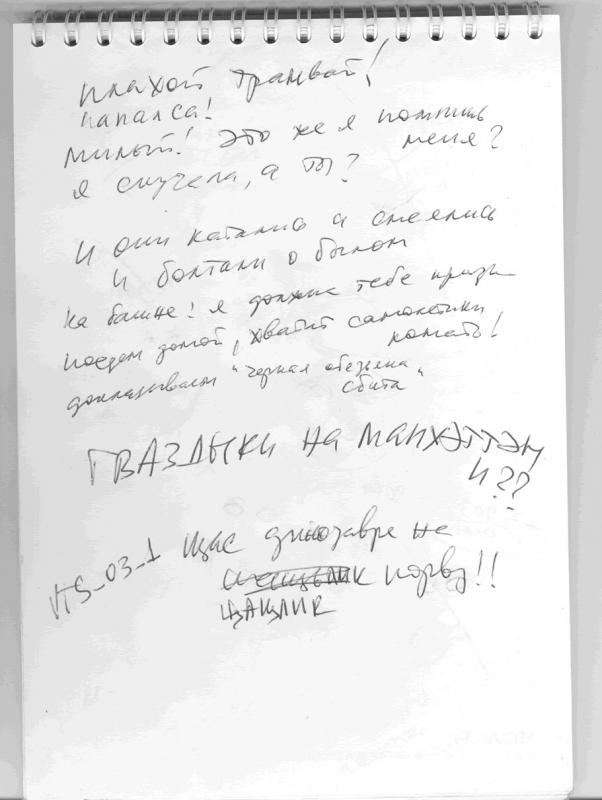 плахой трамвай!
папалса!
милый! это же я помнишь
меня?
я скучела, а ты?
И они катались и смеялись
и болтали о былом
На башне! я должна тебе
поедем домой, хватит самолетики
ломать!
докладываем "черная обезьяна"
сбита
ГВАЗДЫКИ на МАНХЭТТЭН
И??
VTS_03_1 щас динозавре на
порву!!